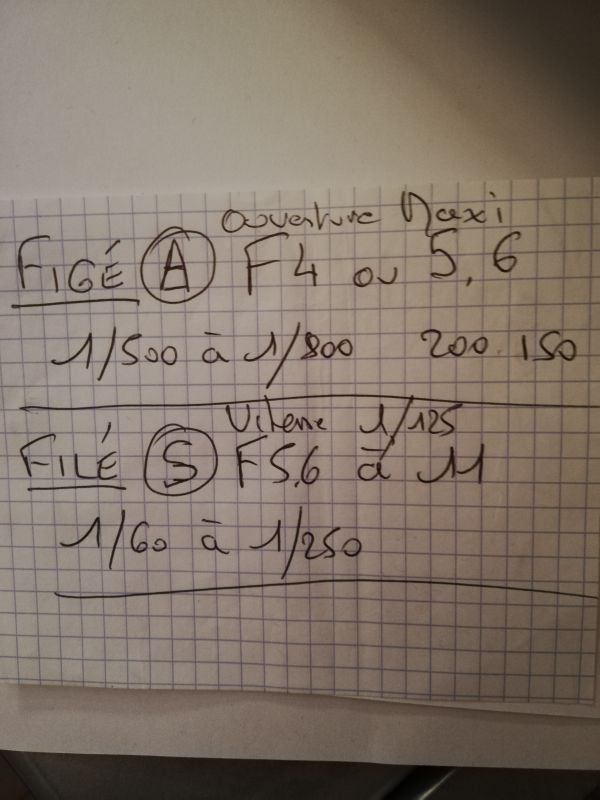 Ouverture Maxi
FIGÉ A F4 ou 5,6
1/500 à 1/800 200 150
Vitesse 1/125
FILÉ S F5,6 à 11
1/60 à 1/250